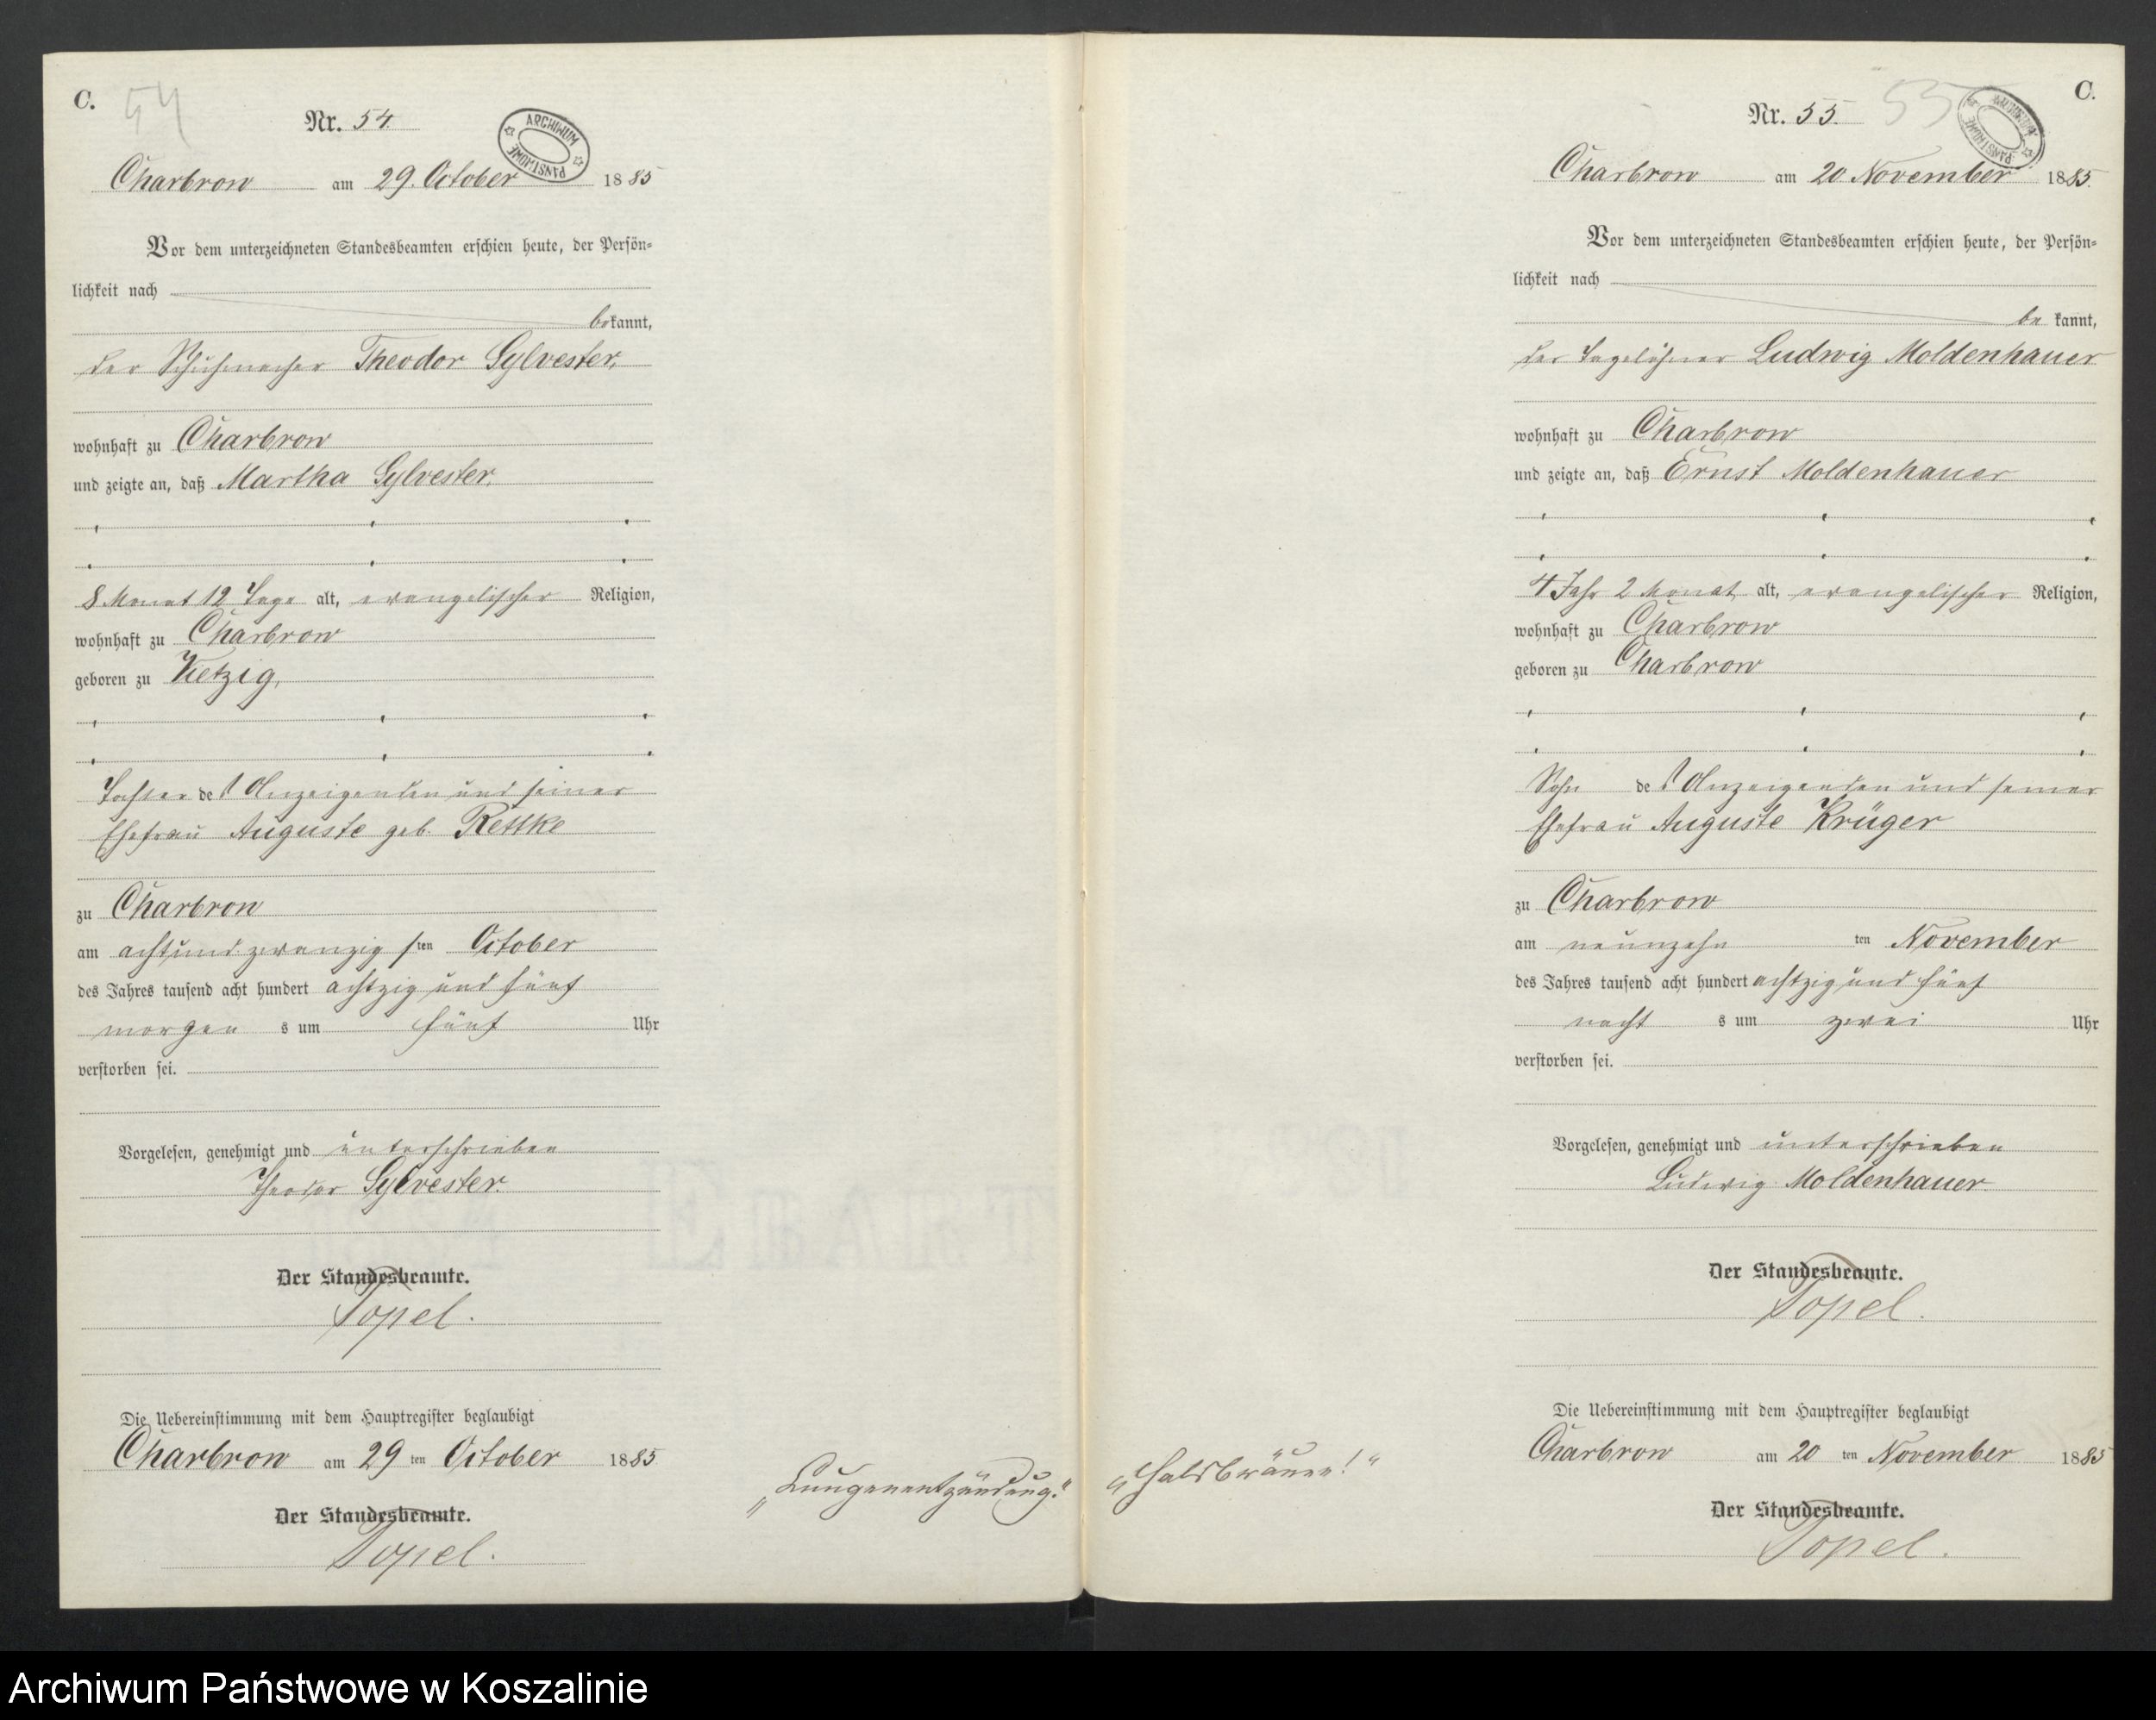 C.
54
Nr. 54.
ARCHIWUM PAŃSTWOWE
Charbrow am 29. October 1885
Vor dem unterzeichneten Standesbeamten erschien heute, der Persön=
lichkeit nach
bekannt,
der Schuhmacher Theodor Sylvester,
wohnhaft zu Charbrow
und zeigte an, daß Martha Sylvester,
8 Monat 12 Tage alt, evangelischer Religion,
wohnhaft zu Charbrow
geboren zu Vietzig,
Tochter des Anzeigenden und seiner
Ehefrau Auguste geb. Rettke
zu Charbrow
am achtundzwanzigsten October
des Jahres tausend acht hundert achtzig und fünf
morgens um fünf Uhr
verstorben sei.
Vorgelesen, genehmigt und unterschrieben
Theodor Sylvester.
Der Standesbeamte.
Topel.
Die Uebereinstimmung mit dem Hauptregister beglaubigt
Charbrow am 29 ten October 1885
Der Standesbeamte.
Topel.
„Lungenentzündung.“
C.
55
Nr. 55.
ARCHIWUM PAŃSTWOWE
Charbrow am 20 November 1885.
Vor dem unterzeichneten Standesbeamten erschien heute, der Persön=
lichkeit nach
bekannt,
der Tagelöhner Ludwig Moldenhauer
wohnhaft zu Charbrow
und zeigte an, daß Ernst Moldenhauer
4 Jahr 2 Monat alt, evangelischer Religion,
wohnhaft zu Charbrow
geboren zu Charbrow
Sohn des Anzeigenden und seiner
Ehefrau Auguste Krüger
zu Charbrow
am neunzehn ten November
des Jahres tausend acht hundert achtzig und fünf
nachts um zwei Uhr
verstorben sei.
Vorgelesen, genehmigt und unterschrieben
Ludwig Moldenhauer.
Der Standesbeamte.
Topel.
Die Uebereinstimmung mit dem Hauptregister beglaubigt
Charbrow am 20 ten November 1885
Der Standesbeamte.
Topel.
„Halsbräune!“
Archiwum Państwowe w Koszalinie